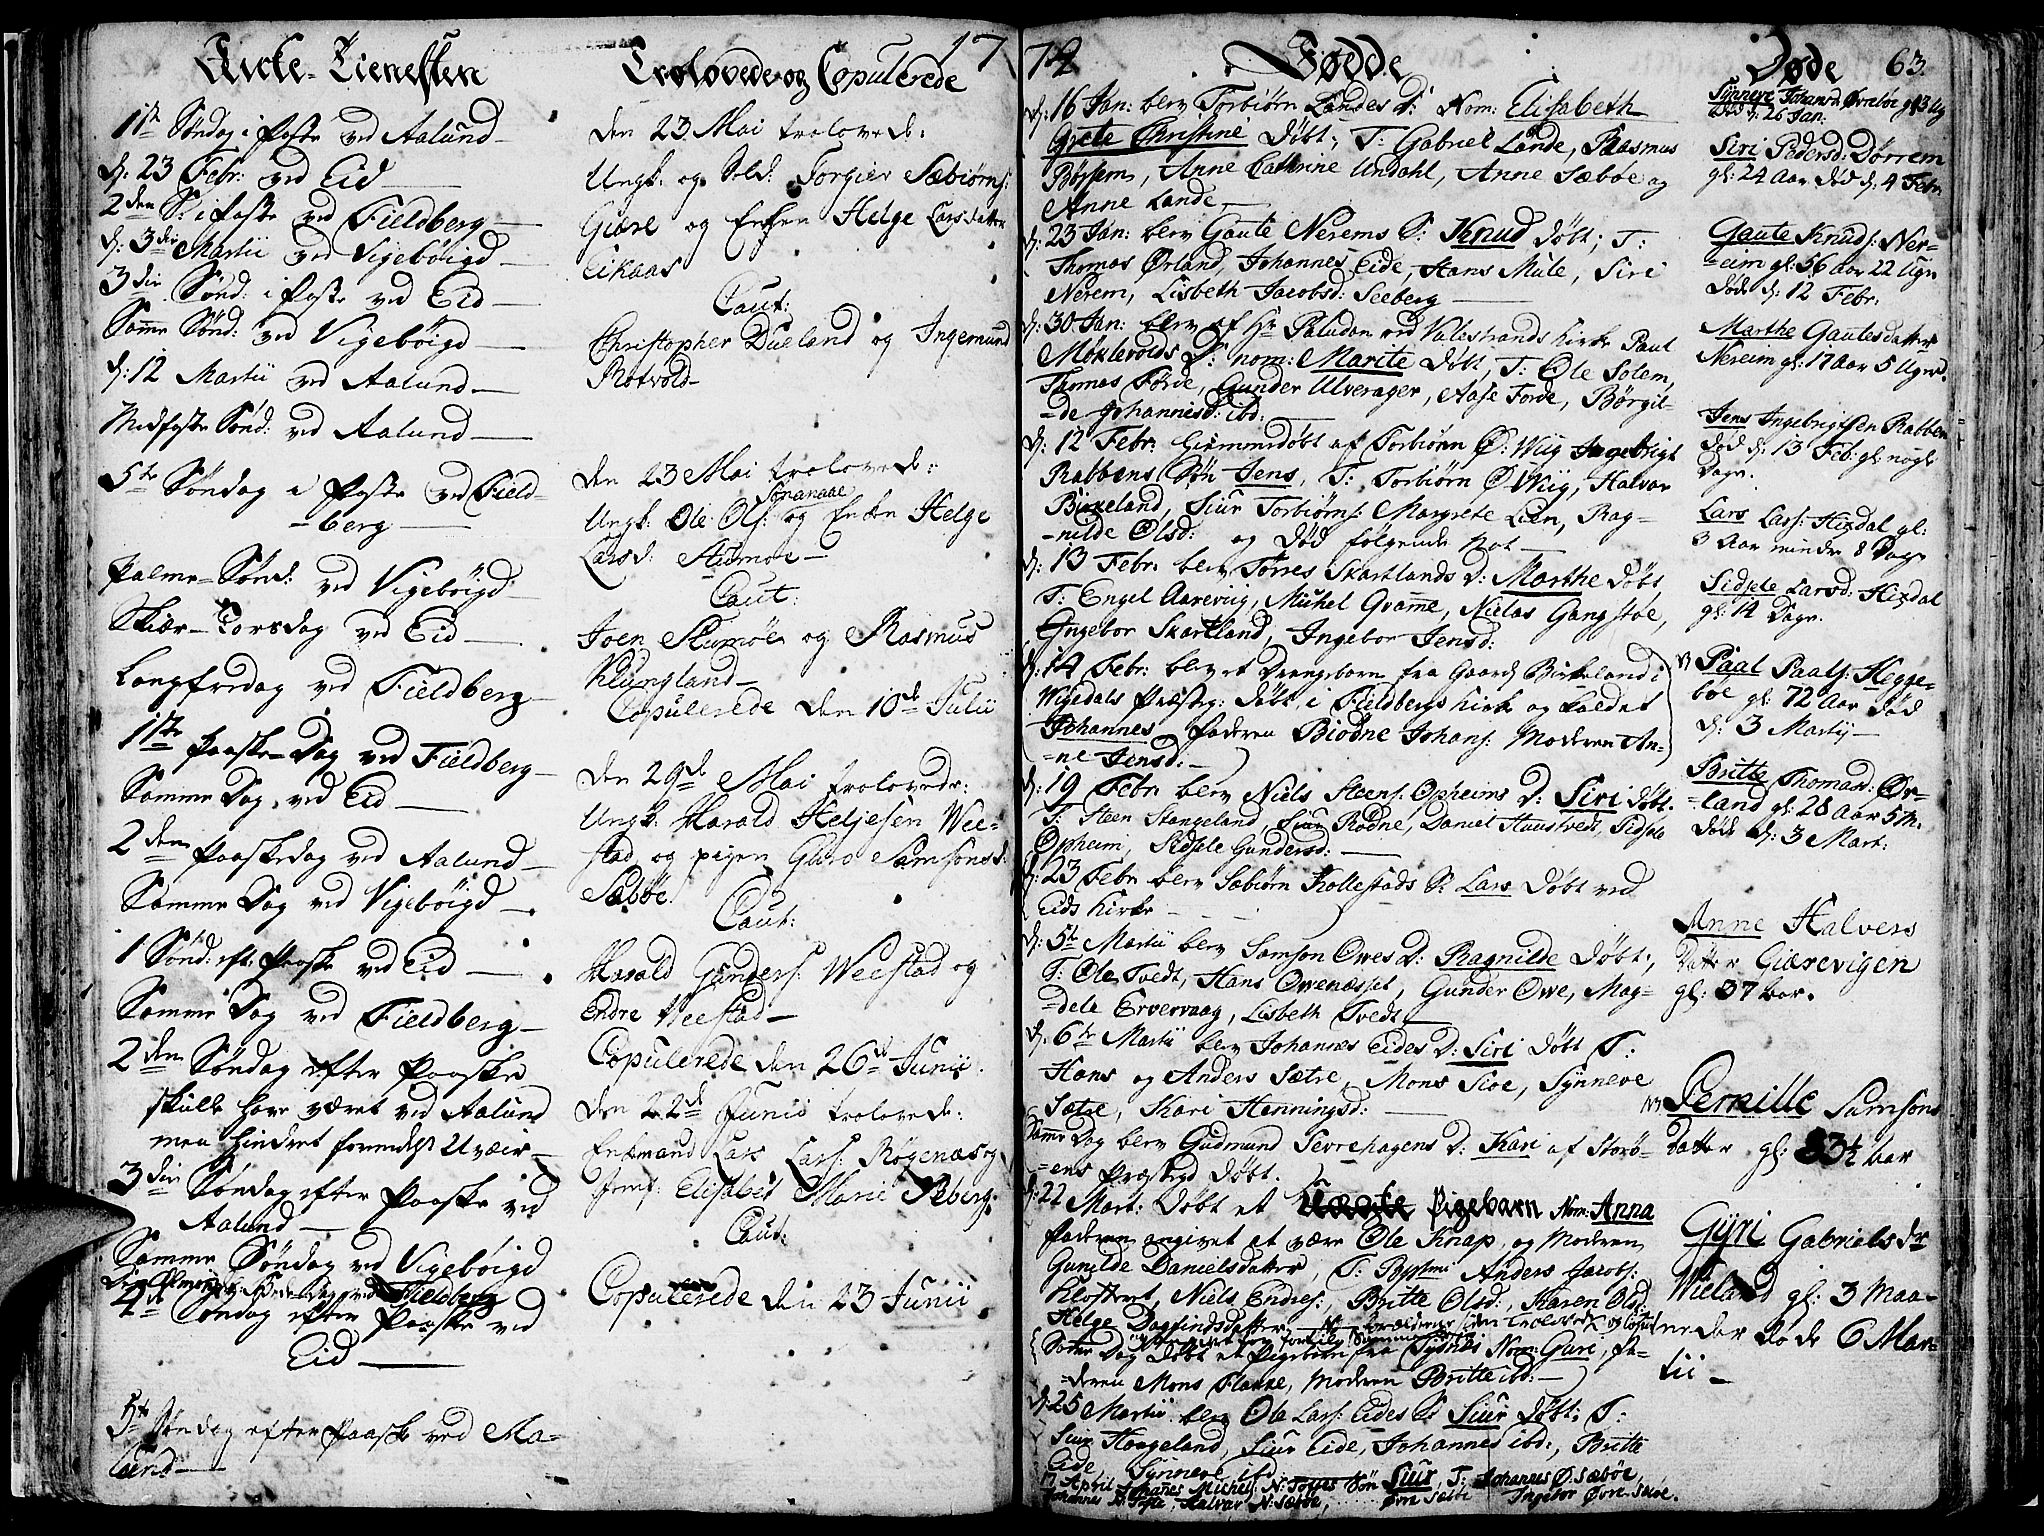 Kirke-Tienesten
1te Søndag i Faste ved Aalund
d: 23 Febr: ved Eid
2den S: i Faste ved Fieldberg
d: 3die Martii ved Vigebøigd
3die Sønd: i Faste ved Eid
Samme Sønd: ved Vigebøigd
d: 12 Martii ved Aalund
Midfaste Sønd: ved Aalund
5te Søndag i Faste ved Field-
berg
Palme-Sønd: ved Vigebøigd
Skiær-Torsdag ved Eid
Langfredag ved Fieldberg
1te Paaske-Dag ved Fieldberg
Samme Dag ved Eid
2den Paaskedag ved Aalund
Samme Dag ved Vigebøigd
1 Sønd: eft: Paaske ved Eid
Samme Dag ved Fieldberg
2den Søndag efter Paaske
skulle have været ved Aalund
men hindret formedelst Uveir
3die Søndag efter Paaske ved
Aalund
Samme Søndag ved Vigebøigd
Dag ved Fieldberg
4de Søndag efter Paaske ved
Eid
5te Søndag efter Paaske ved Aa-
lund
Trolovede og Copulerede 17
den 23 Mai trolovede:
Ungk: og Sold: Torgier Sæbiørns:
Giære og Enken Helge Larsdatter
Eikaas
Caut:
Christopher Dueland og Ingemund
Rotvold
den 23 Mai trolovede:
Ungk: Ole Ols: og Enken Helge
Larsd: Stumoe
Caut:
Joen Stumoe og Rasmus
Klungland
Copulerede den 10de Julii
den 29de Mai trolovede:
Ungk: Harald Heljesen Wee-
stad og pigen Guro Samsonsd:
Sæbøe
Caut:
Harald Gunders: Weestad og
Endre Weestad
Copulerede den 26de Junii
den 22de Junii trolovede:
Enkemand Lars Lars: Røgenæs og
Jomf: Elisabet Marie Seberg:
Caut:
Copulerede den 23 Junii
Fødde
d: 16 Jan: blev Torbiørn Landes D: Nom: Elisabeth
Grete Christine døbt; T: Gabriel Lande, Rasmus
Børsem, Anne Cathrine Undahl, Anne Sæboe og
Anne Lande
d: 23 Jan: blev Gaute Nerems S: Knud døbt; T:
Thomas Ørland, Johannes Eide, Hans Mule, Siri
Nerem, Lisbeth Jacobsd: Seeberg
d: 30 Jan: blev af Hr Paludan ved Valestrands Kirke Paul
Møklevolds D: nom: Marite døbt, T: Ole Solem,
Thomas Førde, Gunder Ulverager, Aase Førde, Børgil-
de Johannesd: ibd:
d: 12 Febr: hiemmedøbt af Torbiørn Ø: Wiig Ingebrigt
Rabbens Søn Jens, T: Torbiørn Ø Wiig, Halvor
Birkeland, Siur Torbiørns: Margrete Lien, Rag-
nilde Olsd: og død følgende Nat
d: 13 Febr: blev Tørres Skartlands D: Marthe døbt,
T: Engel Aarevig, Michel Gramme, Nielas Gangstoe,
Ingebor Skartland, Ingebor Jensd:
d: 14 Febr: blev et Drengebarn fra Gaard Birkeland i
Wigedals Præsteg: døbt i Fieldbergs Kirke og kaldet
Johannes, Faderen Biodne Johans: Moderen An-
ne Jensd:
d: 19 Febr: blev Niels Steens: Opheims D: Siri døbt.
T: Steen Stangeland, Siur Rødne, Daniel Haustvedt, Sidsele
Opheim, Sidsele Gundersd:
d: 23 Febr: blev Sæbiørn Kollestads S: Lars døbt ved
Eids Kirke
d: 5te Martii blev Samson Owes D: Ragnilde døbt,
T: Ole Tvedt, Hans Owenæsset, Gunder Owe, Mag-
dele Ervervaag, Lisbeth Tvedt
d: 6te Martii blev Johannes Eides D: Siri døbt T:
Hans og Anders Sætre, Mons Sioe, Synneve
Sætre, Kari Henningsd:
Samme Dag blev Gudmund Sevrehagens D: Kari af Storø-
ens Præstegd døbt.
d: 22 Mart: døbt et Pigebarn Nom: Anna
Faderen angivet at være Ole Knap, og Moderen
Gunilde Danielsdatter, T: Anders Jacobs:
Klosteret, Niels Endres:, Britte Olsd:, Karen Olsd:
Helge Dagfindsdatter
Samme Dag døbt et Pigebarn fra Nom: Guri, Fa-
deren Mons Flakke, Moderen Britte ibd:
d: 25 Martii blev Ole Lars: Eides S: Siur døbt; T:
Siur Haugeland, Siur Eide, Johannes ibd:, Britte
Eide, Synneve ibd:
April Johannes Michels: N: Søn Siur, T: Johannes Ø: Sæbøe,
Halvar N: Sæbøe, Øvre Sæbøe Ingebor Øvre Sæbøe.
Døde 63.
Synneve Johansd: Ørrebøe gl: 3 Ug
død d: 26 Jan:
Siri Pedersd: Dørrem
gl: 24 Aar død d: 4 Febr:
Gaute Knuds: Ner-
eim gl: 56 Aar 22 Uger
døde d: 12 Febr:
Marthe Gautesdatter
Nereim gl: 17 Aar 5 Uger.
Jens Ingebrigtsen Rabben
død d: 13 Feb: gl: nogle
Dage.
Lars Lars: Hixdal gl:
3 Aar mindre 8 Dage
Sidsele Larsd: Hixdal
gl: 14 Dage.
Paal Paals: Hegge-
bøe gl: 72 Aar død
d: 3 Martij
Britte Thomasd: Ør-
land gl: 28 Aar 5 M.
døde d: 3 Mart:
Anne Halvers
Datter Giærevigen
gl: 37 Aar.
Pernille Samsons
datter gl: 83½ Aar
Gyri Gabrielsdr
Wieland gl: 3 Maa-
neder døde 6 Mar-
tii